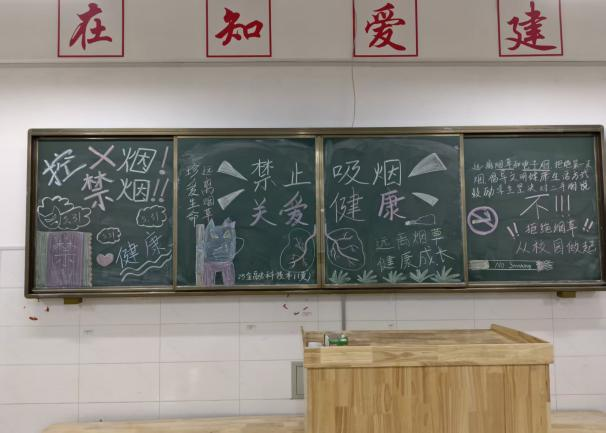 在 知 爱 建
控×烟!
禁烟!!
5.31
5.31
5.31
禁
健康
珍爱生命
远离烟草
禁止
吸烟
关爱
健康
远离烟草
健康成长
远离烟草和电子烟 拒绝第一支
烟 倡导文明健康生活方式
鼓励学生坚决对二手烟说
不!!!
!!拒绝烟草!!
从校园做起
No Smoking